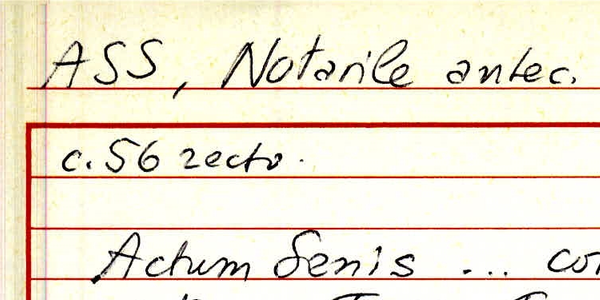 ASS, Notarile antec.
c. 56 recto.
Actum Senis ... co